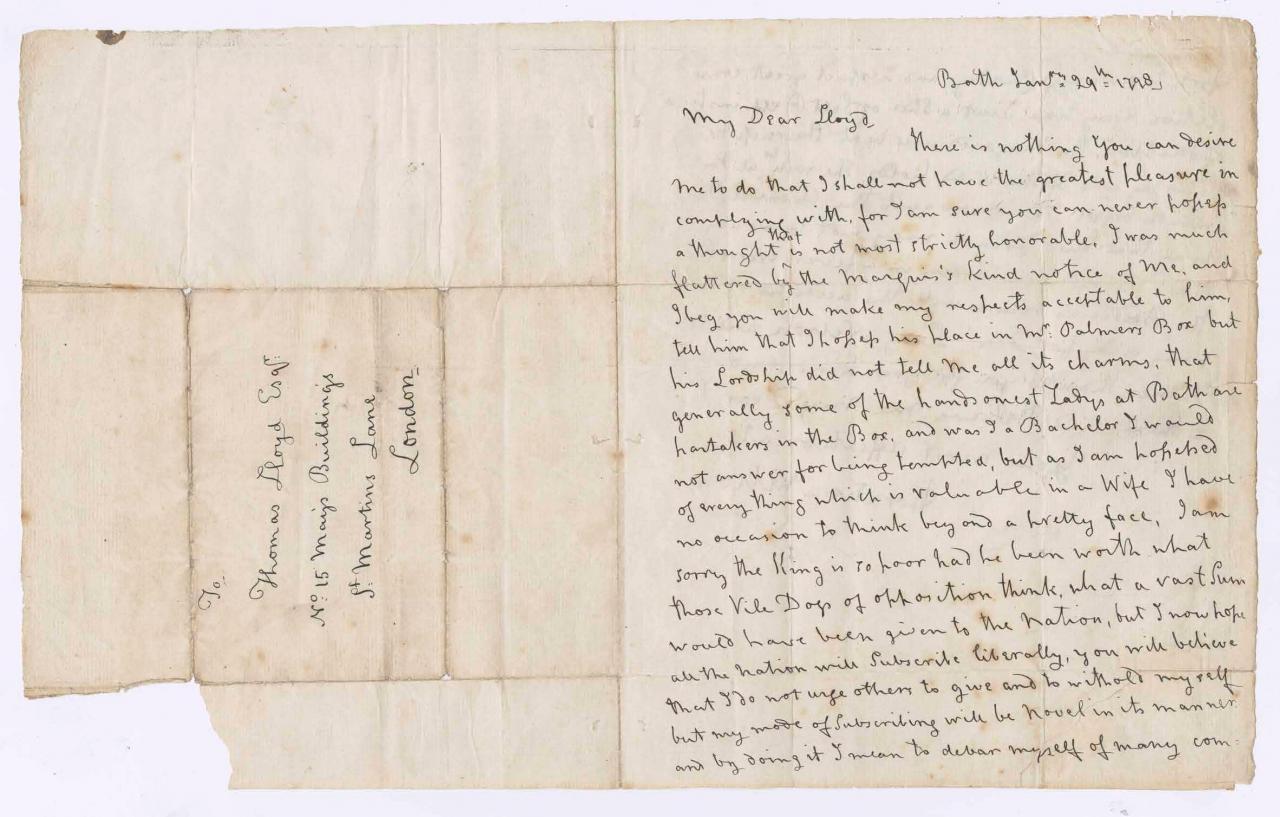 To
Thomas Lloyd Esqr.
No. 15 Mays Buildings
St. Martins Lane
London
Bath Janry. 29th 1798
My Dear Lloyd
There is nothing you can desire
Me to do that I shall not have the greatest pleasure in
complying with, for I am sure you can never possess
a thought that is not most strictly honorable, I was much
flattered by the Marquis's Kind notice of Me, and
I beg you will make my respects acceptable to him,
tell him that I possess his place in Mr. Palmers Box but
his Lordship did not tell Me all its charms, that
generally some of the handsomest Ladys at Bath are
partakers in the Box, and was I a Bachelor I would
not answer for being tempted, but as I am possessed
of every thing which is valuable in a Wife I have
no occasion to think beyond a pretty face, I am
sorry the King is so poor had he been worth what
those Vile Dogs of opposition think, what a vast Sum
would have been given to the Nation, but I now hope
all the Nation will Subscribe liberally, you will believe
that I do not urge others to give and to withold myself
but my mode of Subscribing will be Novel in its manner
and by doing it I mean to debar myself of many com-